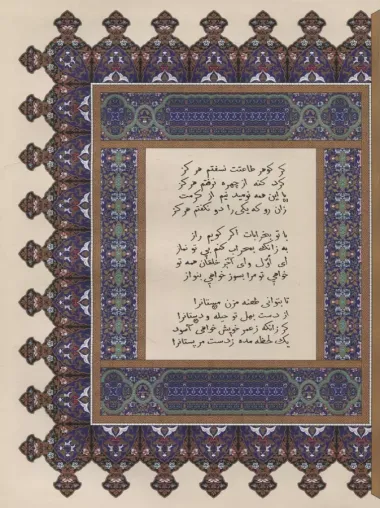 گر گوهر طاعتت نسفتم هرگز
گرد گنه از چهره نرفتم هرگز
با این همه نومید نیم از کرمت
زان رو که یکی را دو نگفتم هرگز
با تو بخرابات اگر گویم راز
به زانکه بمحراب کنم بی تو نماز
ای اول و ای آخر خلقان همه تو
خواهی تو مرا بسوز خواهی بنواز
تا بتوانی طعنه مزن مستانرا
از دست بهل تو حیله و دستانرا
گر زانکه زعمر خویش خواهی آسود
یک لحظه مده زدست مر پستانرا